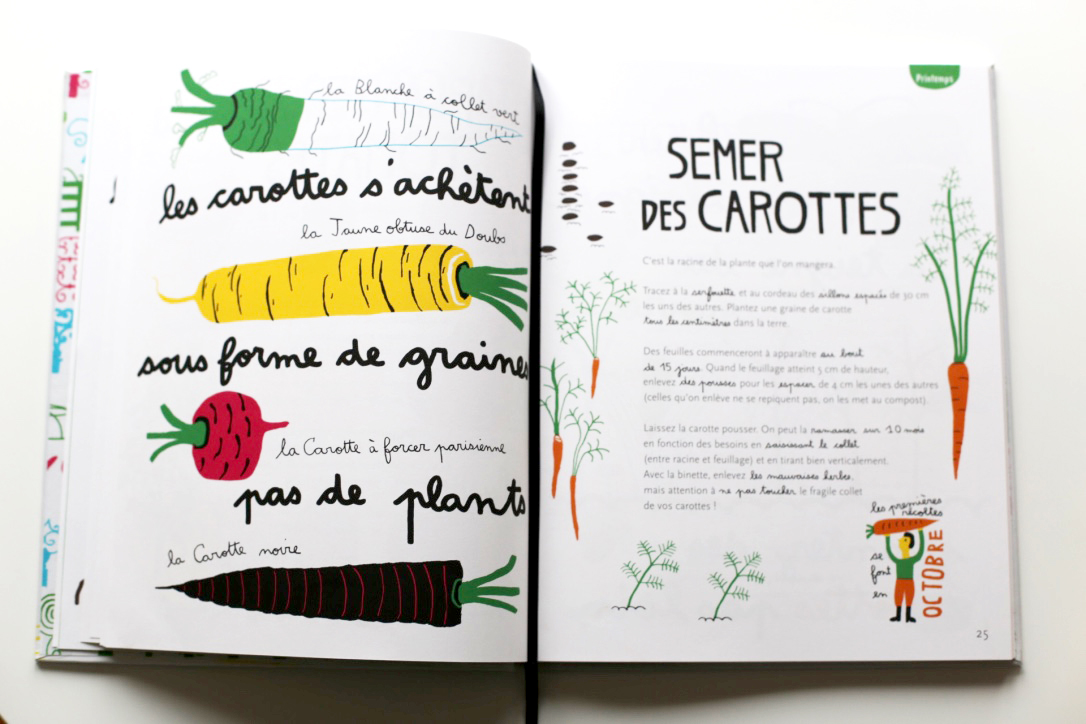 la Blanche à collet vert
les carottes s'achètent
la Jaune obtuse du Doubs
sous forme de graines
la Carotte à forcer parisienne
pas de plants
la Carotte noire
Printemps
SEMER
DES CAROTTES
C'est la racine de la plante que l'on mangera.
Tracez à la serfouette et au cordeau des sillons espacés de 30 cm
les uns des autres. Plantez une graine de carotte
tous les centimètres dans la terre.
Des feuilles commenceront à apparaître au bout
de 15 jours. Quand le feuillage atteint 5 cm de hauteur,
enlevez des pousses pour les espacer de 4 cm les unes des autres
(celles qu'on enlève ne se repiquent pas, on les met au compost).
Laissez la carotte pousser. On peut la ramasser sur 10 mois
en fonction des besoins en saisissant le collet
(entre racine et feuillage) et en tirant bien verticalement.
Avec la binette, enlevez les mauvaises herbes,
mais attention à ne pas toucher le fragile collet
de vos carottes !
les premières
récoltes
se
font
en
OCTOBRE
25